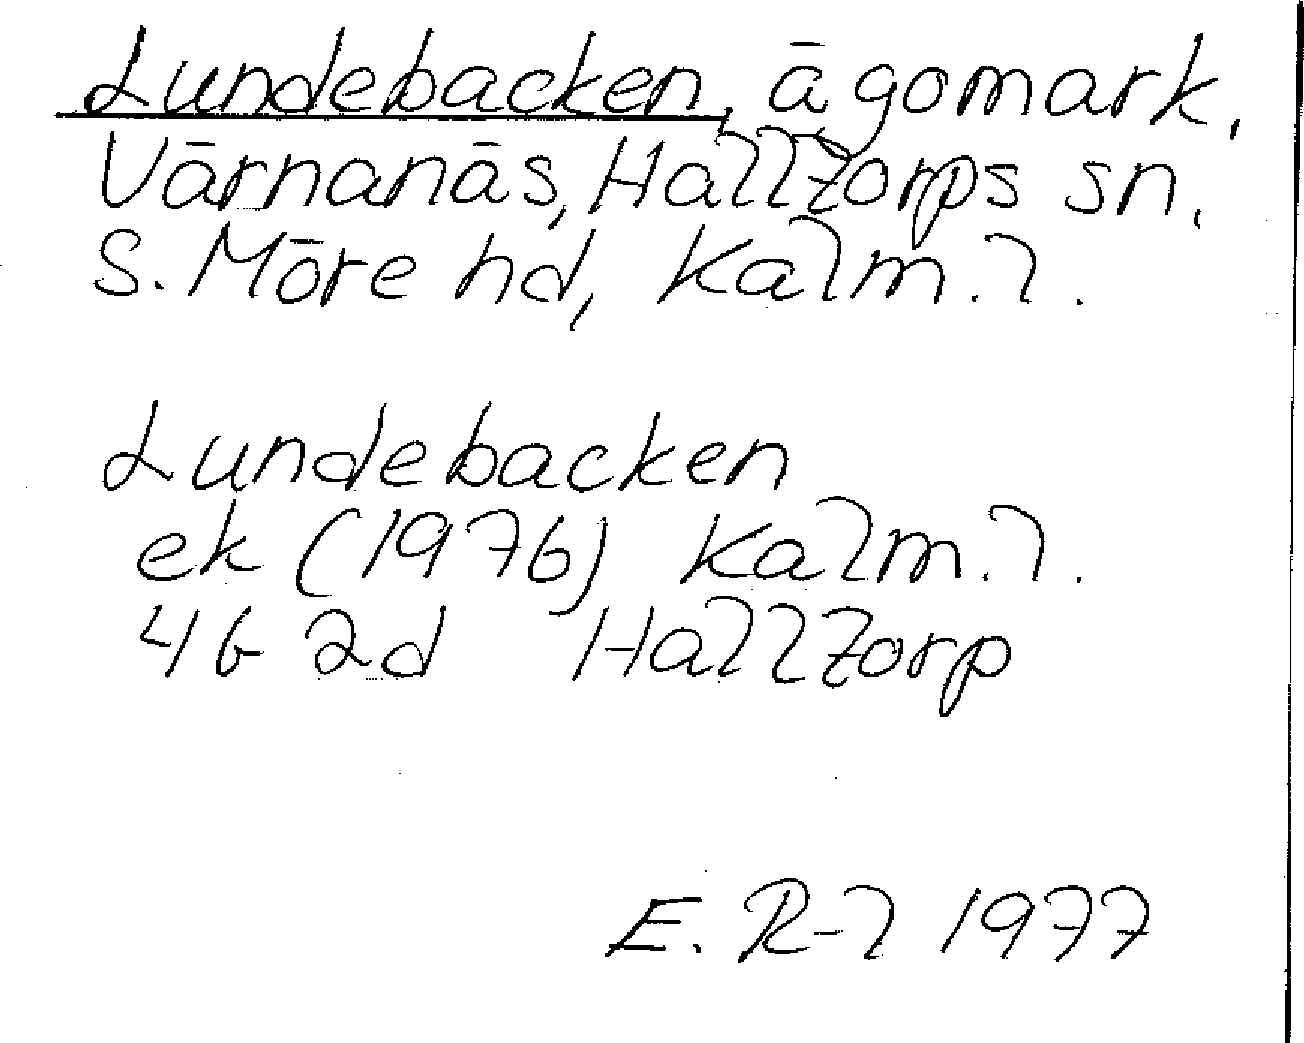 Lundebacken, ägomark,
Värnanäs, Halltorps sn,
S. Möre hd, Kalm. l.
Lundebacken
ek (1976) Kalm. l.
4G 2d Halltorp
E. R-l 1977